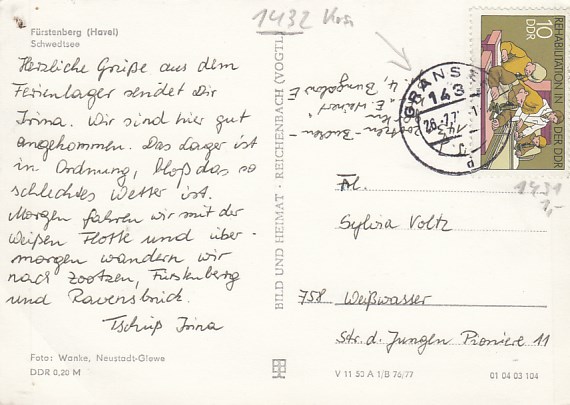 Fürstenberg (Havel)
Schwedtsee
Herzliche Grüße aus dem
Ferienlager sendet Dir
Irina. Wir sind hier gut
angekommen. Das Lager ist
in Ordnung, bloß das so
schlechtes Wetter ist.
Morgen fahren wir mit der
Weißen Flotte und über-
morgen wandern wir
nach Zootzen, Fürstenberg
und Ravensbrück.
Tschüß Irina
Foto: Wanke, Neustadt-Glewe
DDR 0,20 M
BILD UND HEIMAT · REICHENBACH (VOGTL)
1432
Zootzen-Buchen-
E. Weinert
4, Bungalow E
GRANSEE
143
REHABILITATION IN DER DDR
10
DDR
1431
1,-
Frl.
Sylvia Voltz
758 Weißwasser
Str. d. Jungen Pioniere 11
V 11 50 A 1/B 76/77
01 04 03 104